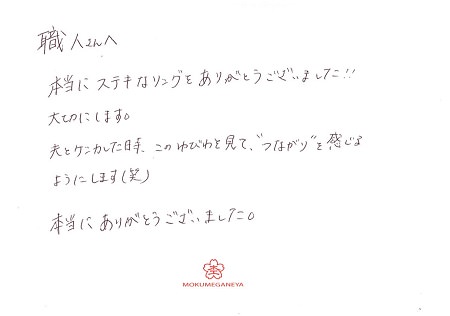 職人さんへ
本当にステキなリングをありがとうございました!!
大切にします。
夫とケンカした時、このゆびわを見て、"つながり"を感じる
ようにします(笑)
本当にありがとうございました。
MOKUMEGANEYA